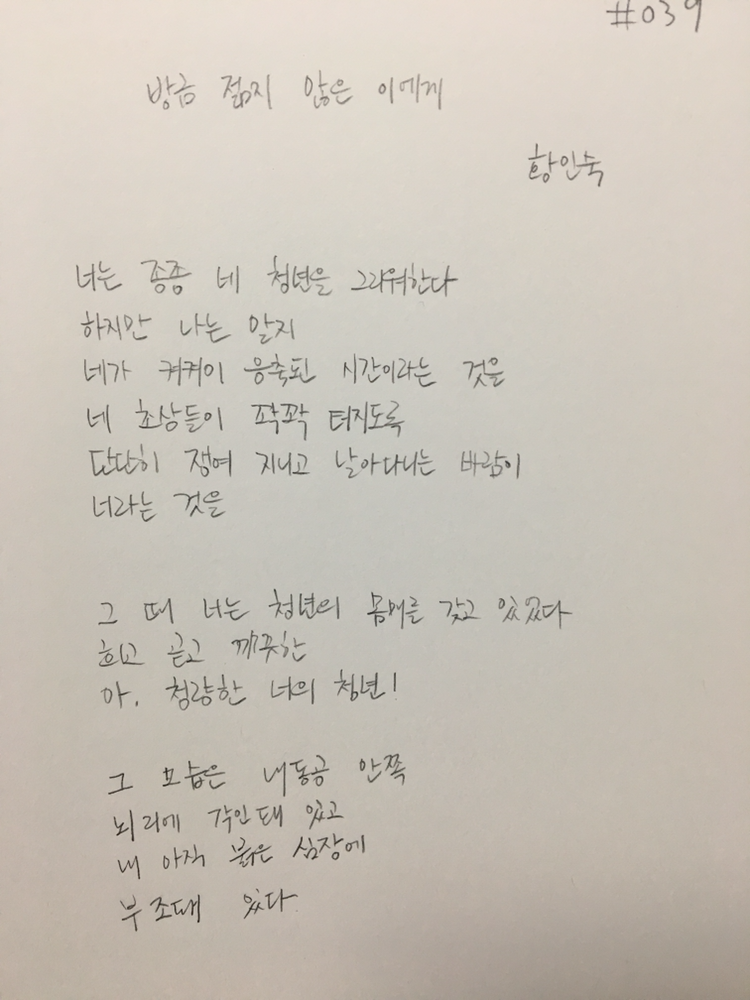 #039
방금 젊지 않은 이에게
황인숙
너는 종종 네 청년을 그리워한다
하지만 나는 알지
네가 켜켜이 응축된 시간이라는 것을
네 초상들이 꽉꽉 터지도록
단단히 쟁여 지니고 날아다니는 바람이
너라는 것을
그 때 너는 청년의 몸매를 갖고 있었다
희고 곧고 깨끗한
아, 청량한 너의 청년!
그 모습은 내 동공 안쪽
뇌리에 각인돼 있고
내 아직 붉은 심장에
부조돼 있다